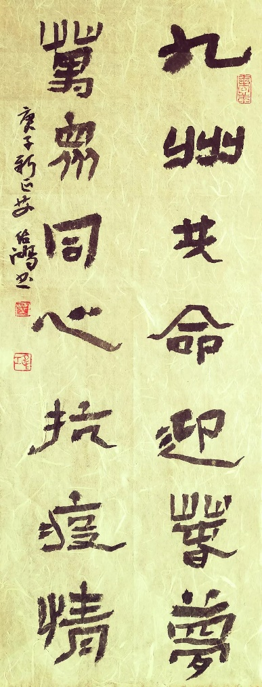 九州共命迎春夢
萬眾同心抗疫情
庚子新正